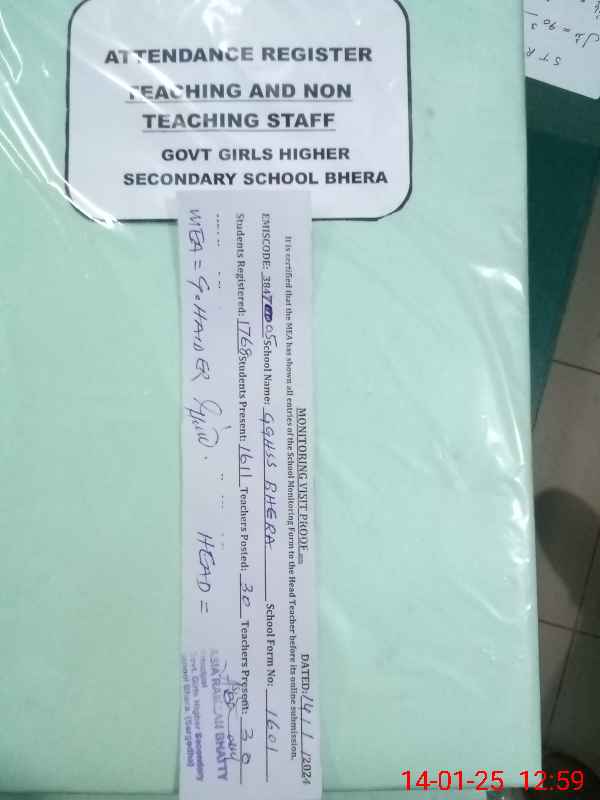 ATTENDANCE REGISTER
TEACHING AND NON
TEACHING STAFF
GOVT GIRLS HIGHER
SECONDARY SCHOOL BHERA
MONITORING VISIT PROOF
DATED: 14/1/2024
It is certified that the MEA has shown all entries of the School Monitoring Form to the Head Teacher before its online submission.
EMISCODE: 3847 005 School Name: GGHSS BHERA School Form No: 1601
Students Registered: 1768 Students Present: 1611 Teachers Posted: 30 Teachers Present: 30
MEA = G. HAIDER HEAD =
BHATTY
Govt. Girls Higher Secondary
School Bhera. (Sargodha)
S T R
= 90
14-01-25 12:59